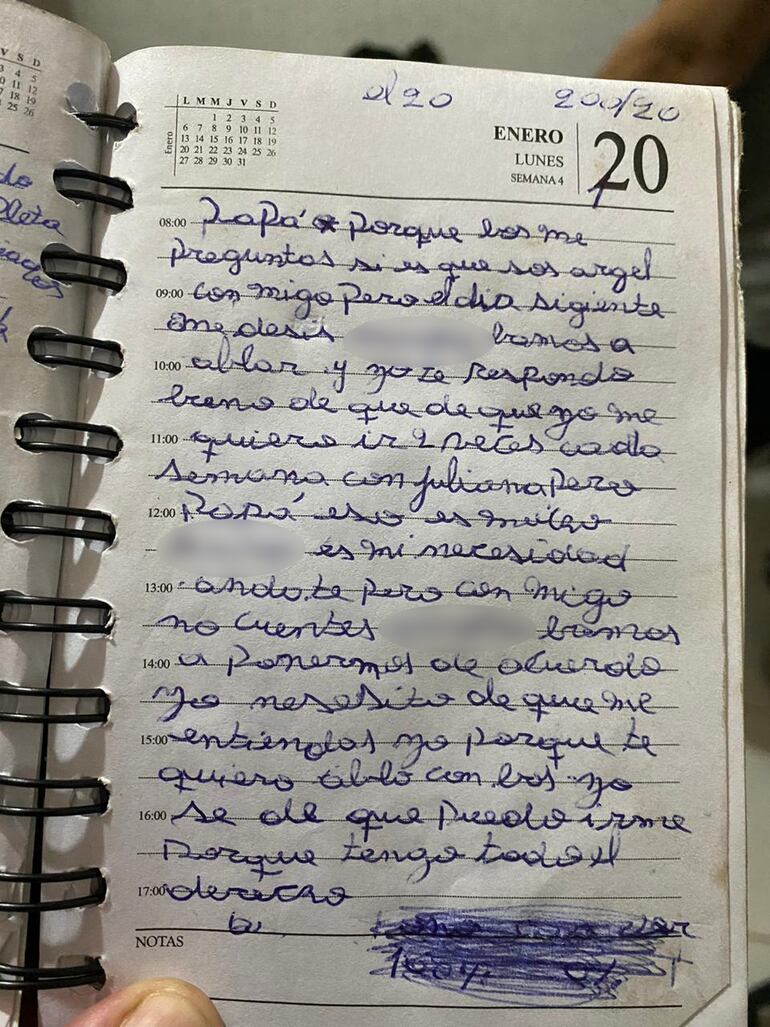 V S D
3 4 5
10 11 12
17 18 19
25 26
L M M J V S D
1 2 3 4 5
6 7 8 9 10 11 12
13 14 15 16 17 18 19
20 21 22 23 24 25 26
27 28 29 30 31
Enero
el 20
200/20
ENERO
LUNES
SEMANA 4
20
08:00 PaPá Porque bos me
preguntas si es que sos argel
09:00 con migo pero el dia sigiente
me desis bamos a
10:00 ablar y yo te Respondo
bueno de que de que yo me
11:00 quiero ir 2 veces cada
semana con juliana pero
12:00 PaPá eso es mucho
es mi necesidad
13:00 andate pero con migo
no cuentes bamos
14:00 a ponernos de acuerdo
yo nesesito de que me
15:00 entiendas yo porque te
quiero ablo con bos yo
16:00 se de que puedo irme
porque tengo todo el
17:00 derecho
NOTAS